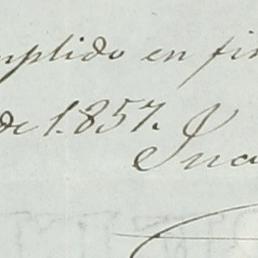 mplido en fin
de 1.857.
Jua